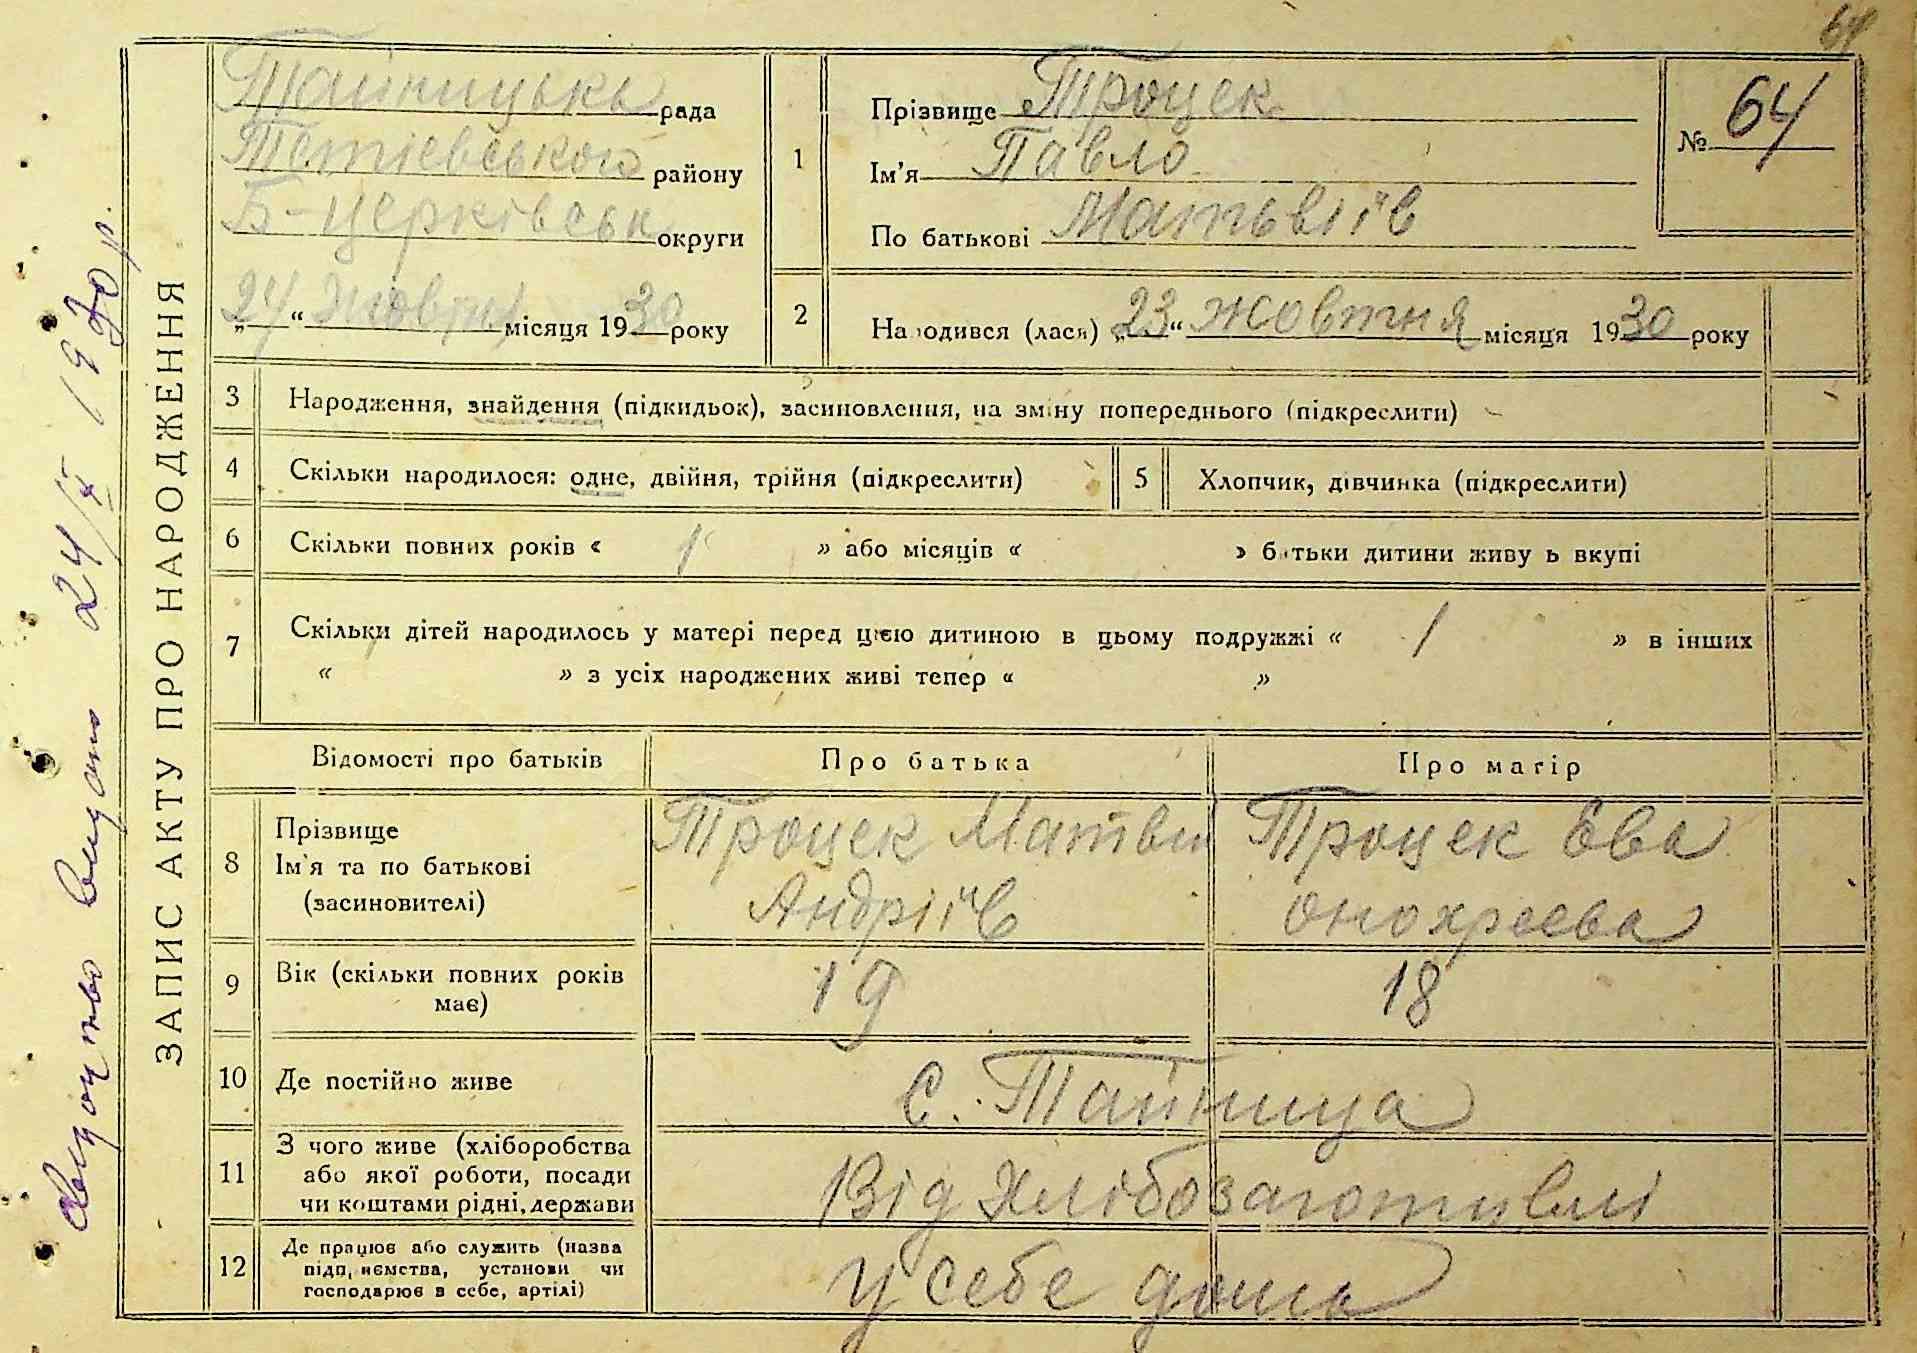 64
Тайницька рада
Тетіевського району
Б-церківськ округи
„24“ жовтня місяця 1930 року
1
Прізвище Троцек
Ім'я Павло
По батькові Матьвіїв
№ 64
2
Народився (лася) „23“ жовтня місяця 1930 року
ЗАПИС АКТУ ПРО НАРОДЖЕННЯ
24/X 1930 р.
3 Народження, знайдення (підкидьок), засиновлення, на зміну попереднього (підкреслити)
4 Скільки народилося: одне, двійня, трійня (підкреслити)
5 Хлопчик, дівчинка (підкреслити)
6 Скільки повних років « 1 » або місяців « » батьки дитини живуть вкупі
7 Скільки дітей народилось у матері перед цією дитиною в цьому подружжі « 1 » в інших
« » з усіх народжених живі тепер « »
Відомості про батьків
Про батька
Про матір
8 Прізвище
Ім'я та по батькові
(засиновителі)
Троцек Матвій
Андріїв
Троцек Ева
Онохреева
9 Вік (скільки повних років
має)
19
18
10 Де постійно живе
с. Тайниця
11 З чого живе (хліборобства
або якої роботи, посади
чи коштами рідні, держави
Від Хлібозаготивлі
12 Де працює або служить (назва
підприємства, установи чи
господарює в себе, артілі)
у себе дома